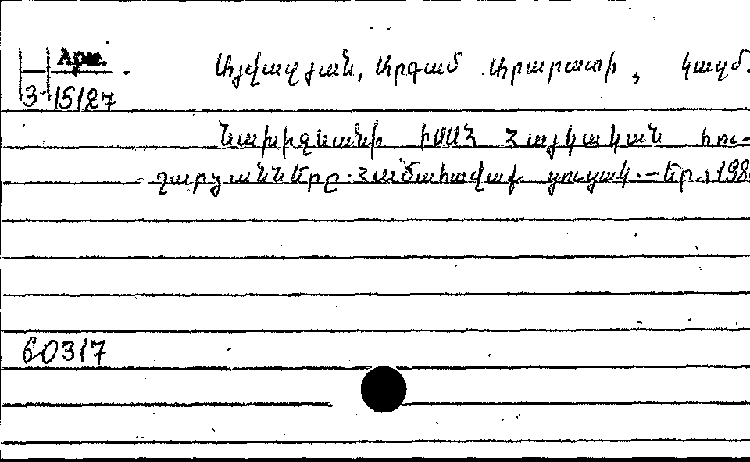 Арм.
3-15127
Այվազյան, Արգամ Արարատի, կազմ.
Նախիջևանի ԻՍՍՀ հայկական հու-
շարձանները. Համահավաք ցուցակ. – Եր., 198
60317